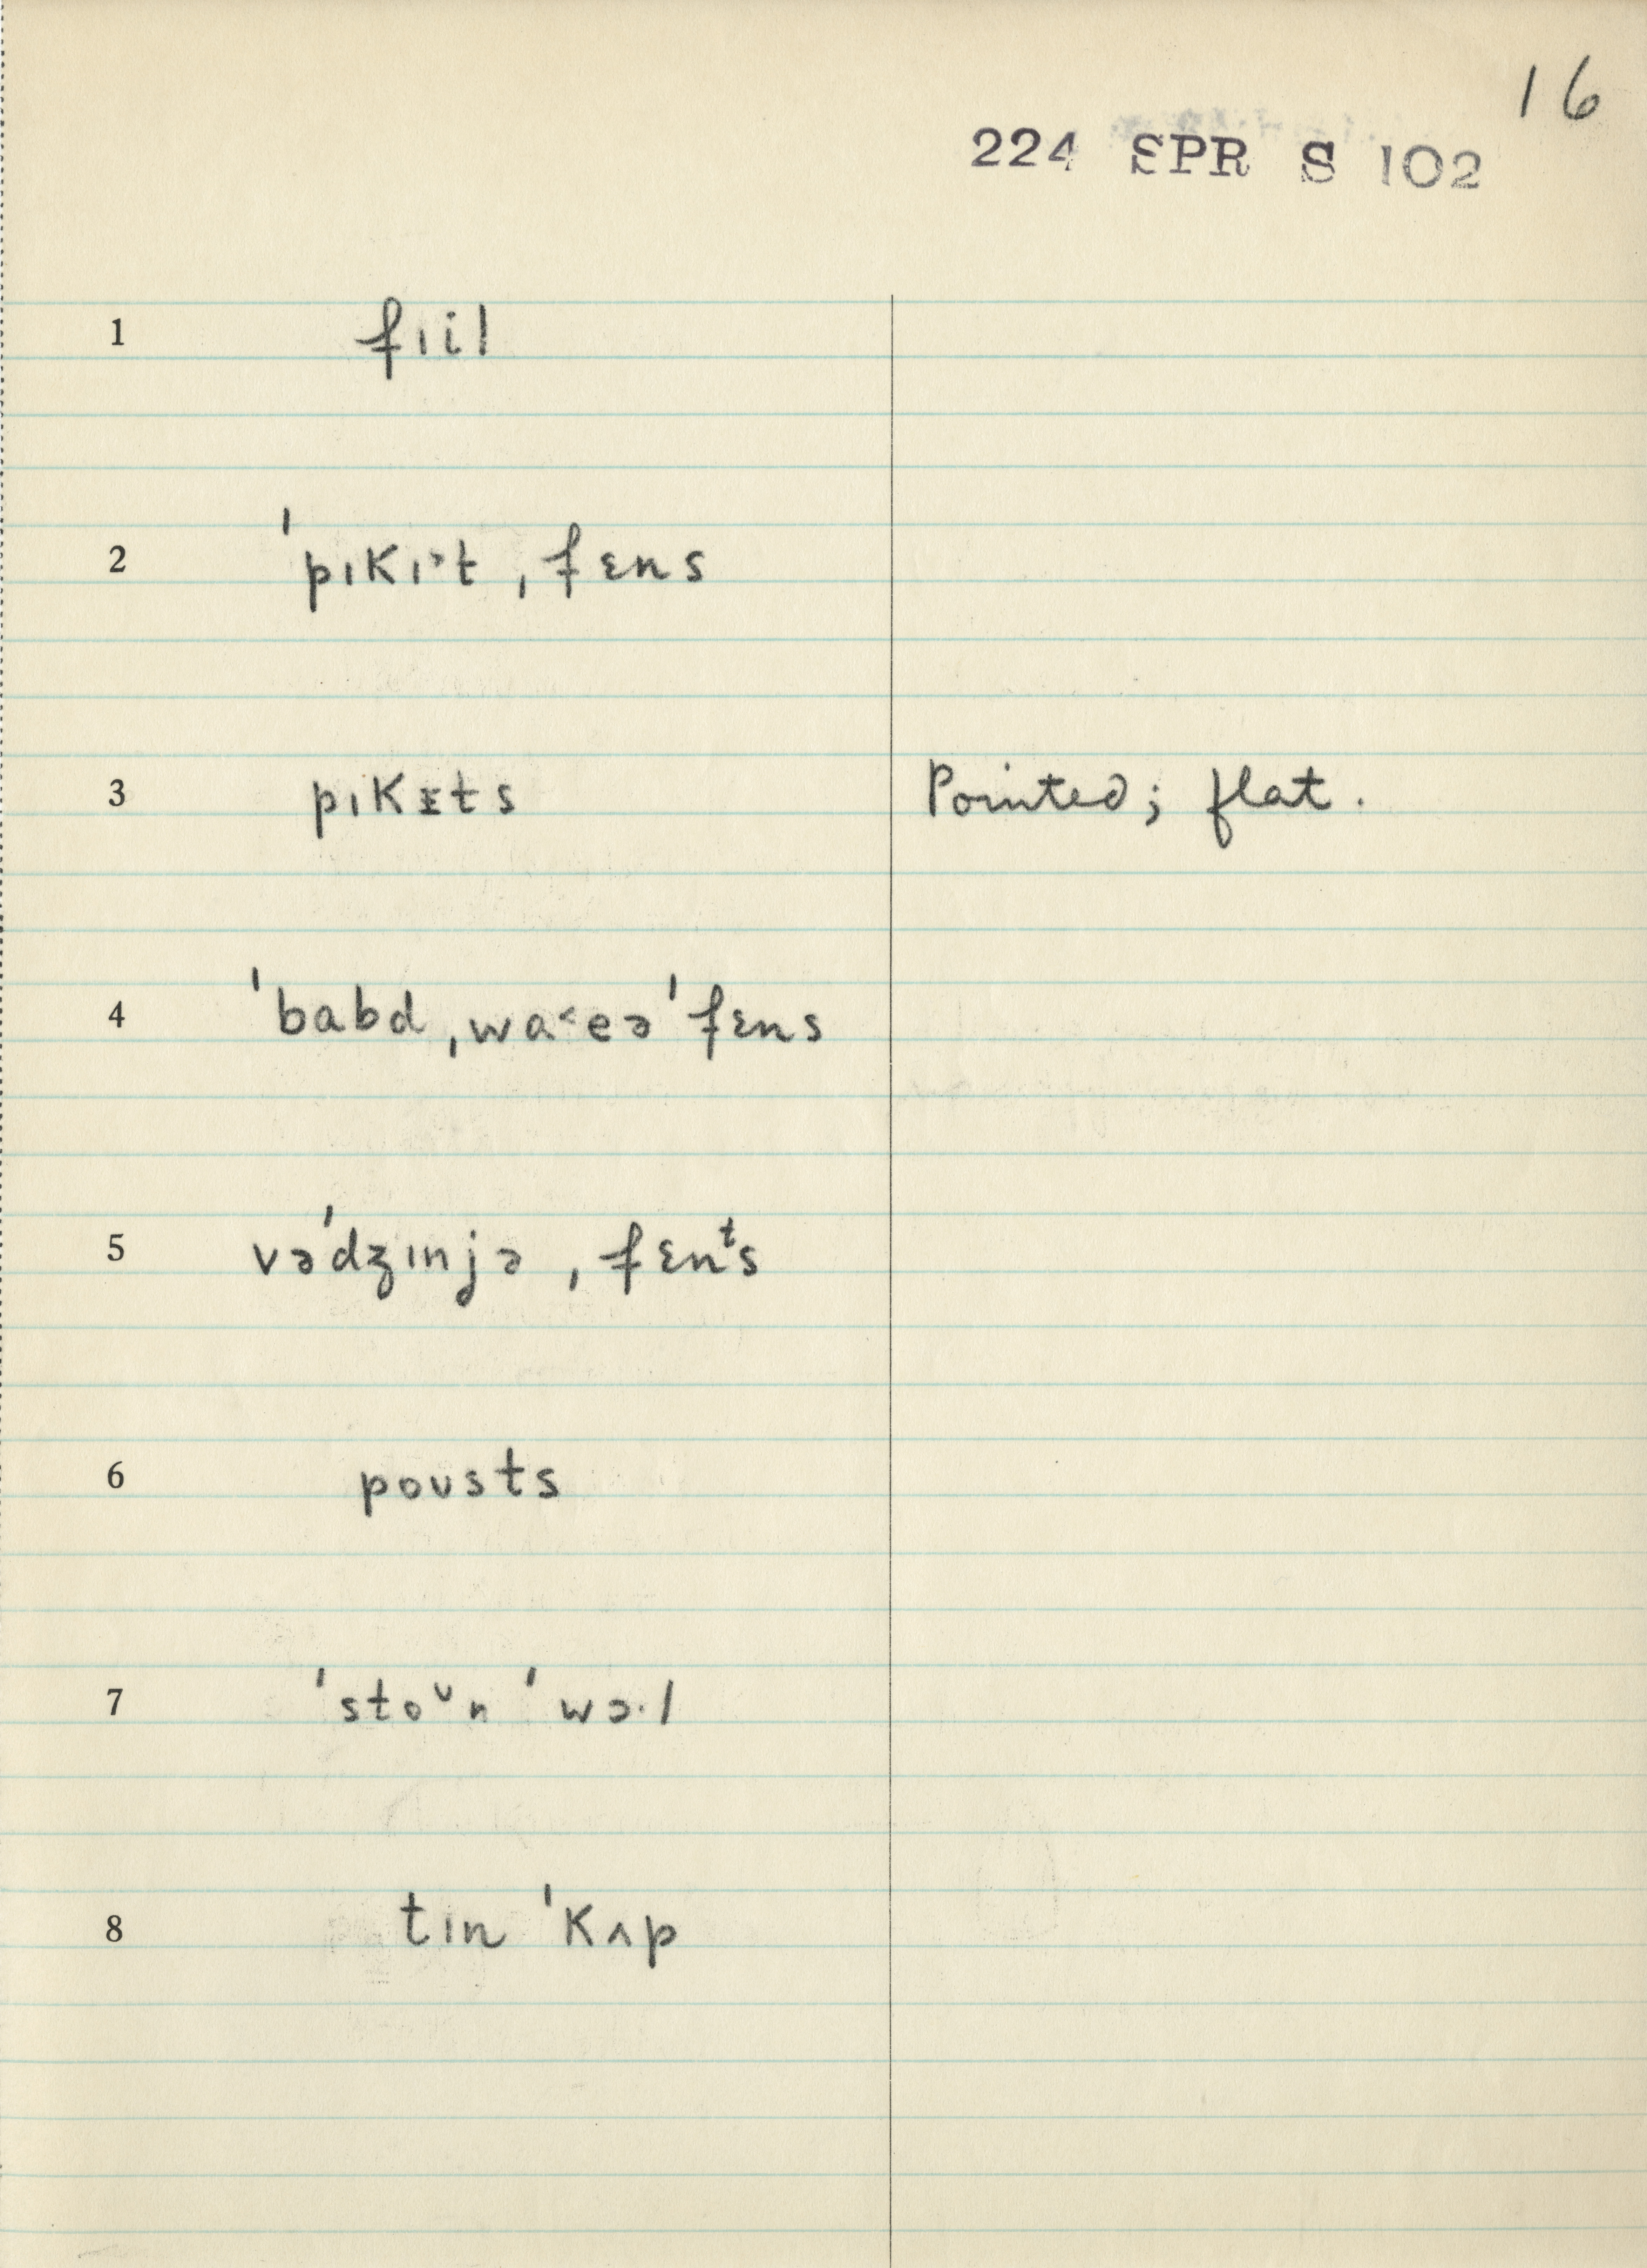 16
224 SPR S 102
1 fɪil
2 ˈpɪkɪ˃t ˌfɛns
3 pɪkɪts Pointed; flat.
4 ˈbabd ˌwa˂eə ˈfɛns
5 vəˈdʒɪnjə ˌfɛnᵗs
6 poʊsts
7 ˈstoᶷn ˈwɔ·l
8 tɪn ˈkʌp